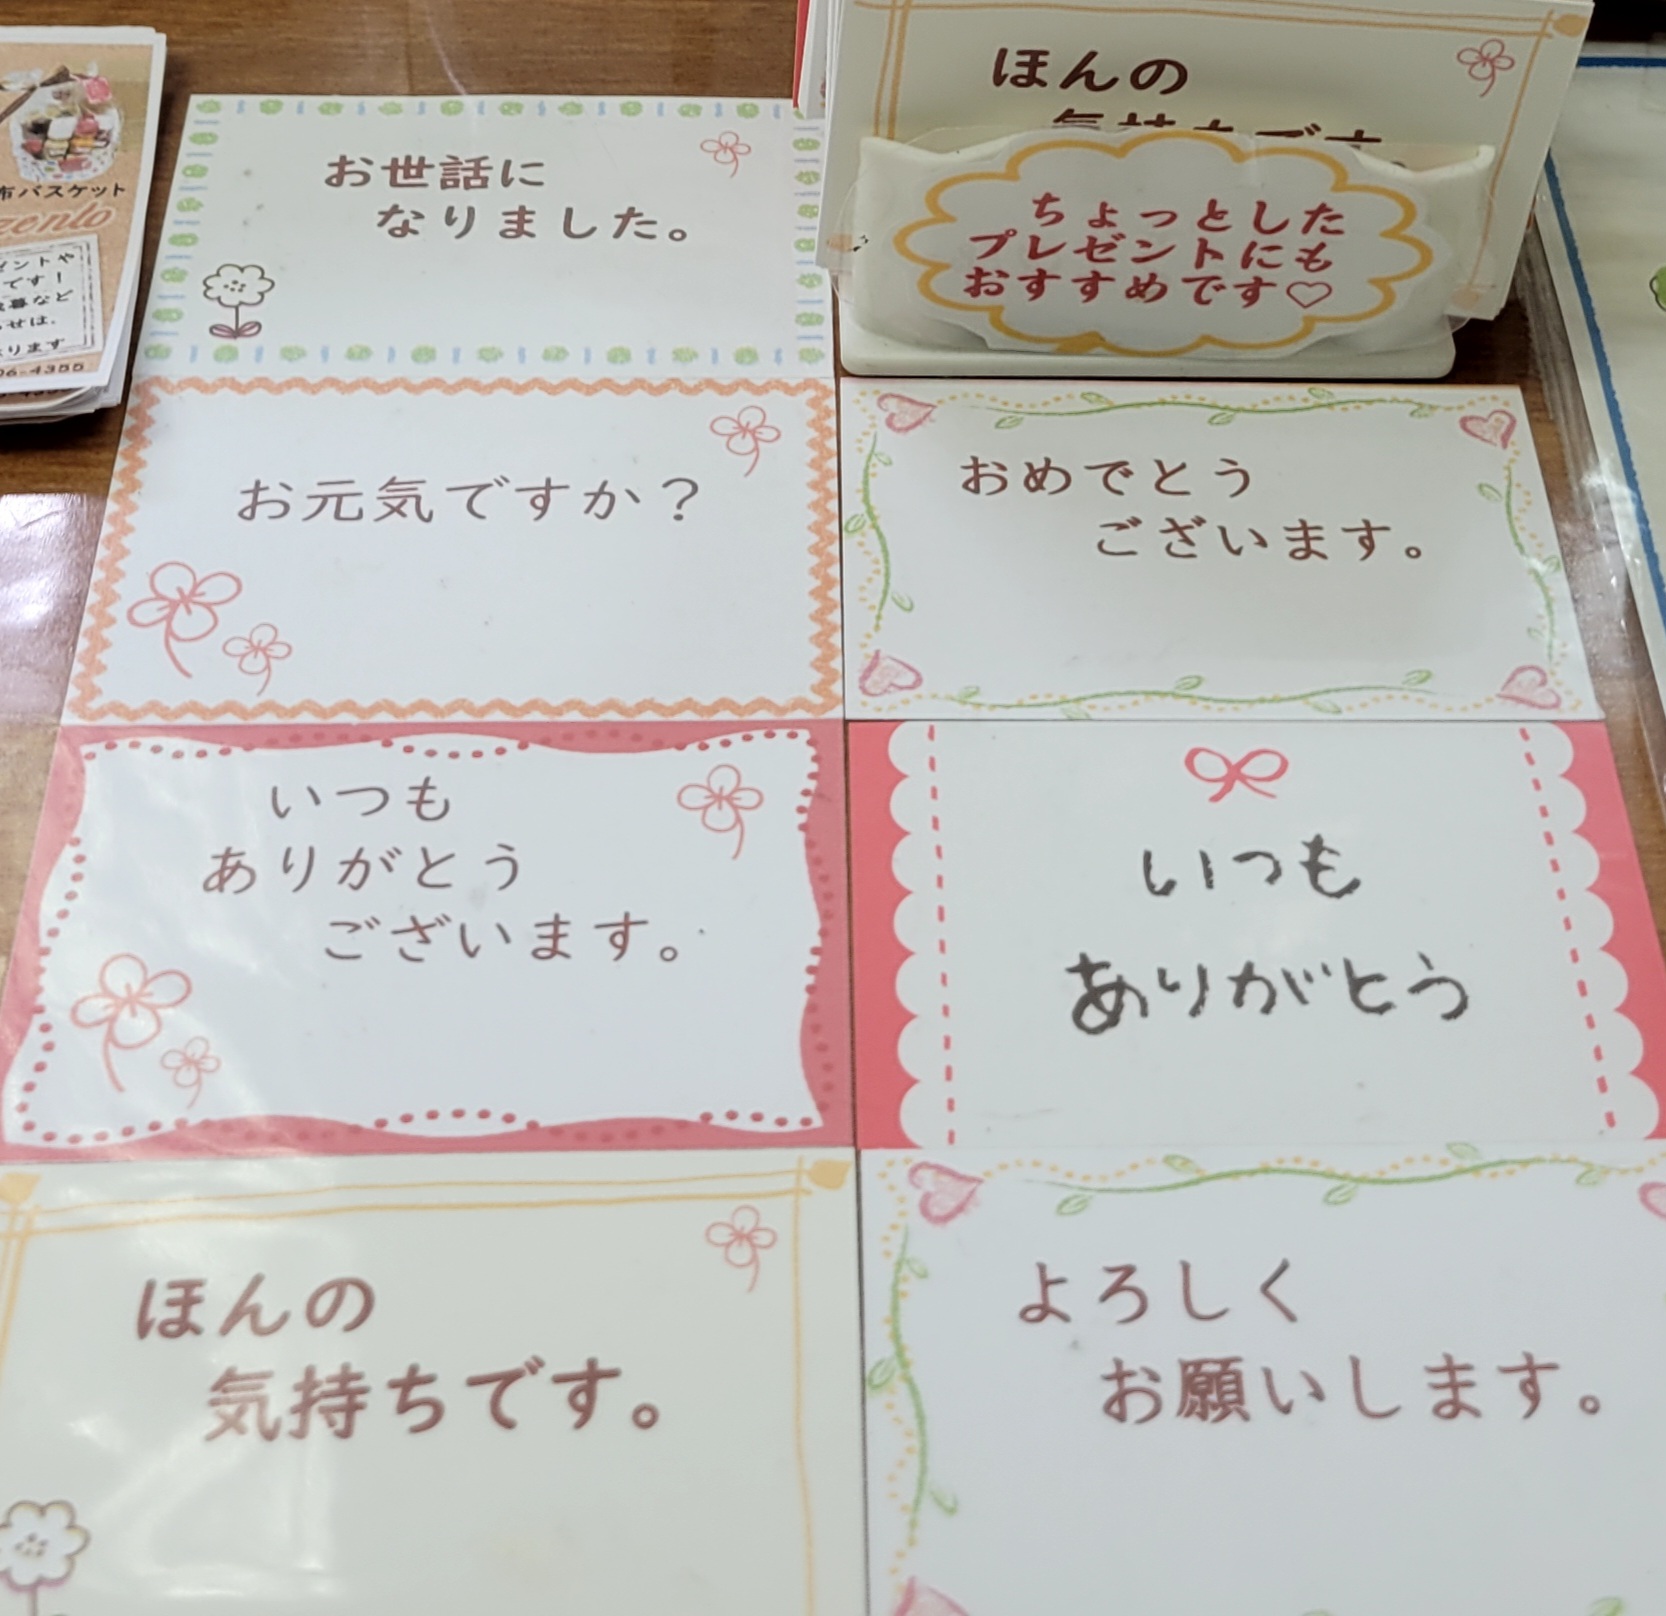 布バスケット
ゼントや
です！
せは、
ります
06-4355
お世話に
なりました。
ほんの
ちょっとした
プレゼントにも
おすすめです♡
お元気ですか？
おめでとう
ございます。
いつも
ありがとう
ございます。
いつも
ありがとう
ほんの
気持ちです。
よろしく
お願いします。